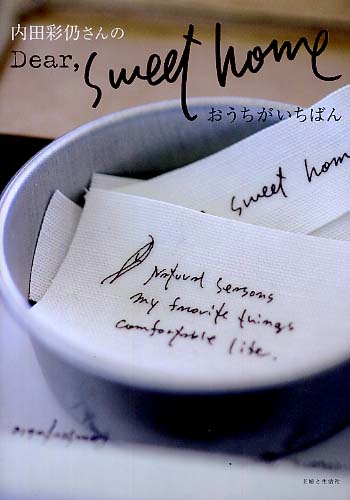 内田彩仍さんの
Dear, sweet home
おうちがいちばん
sweet hom
Natural seasons
my favorite things
comfortable life.
主婦と生活社